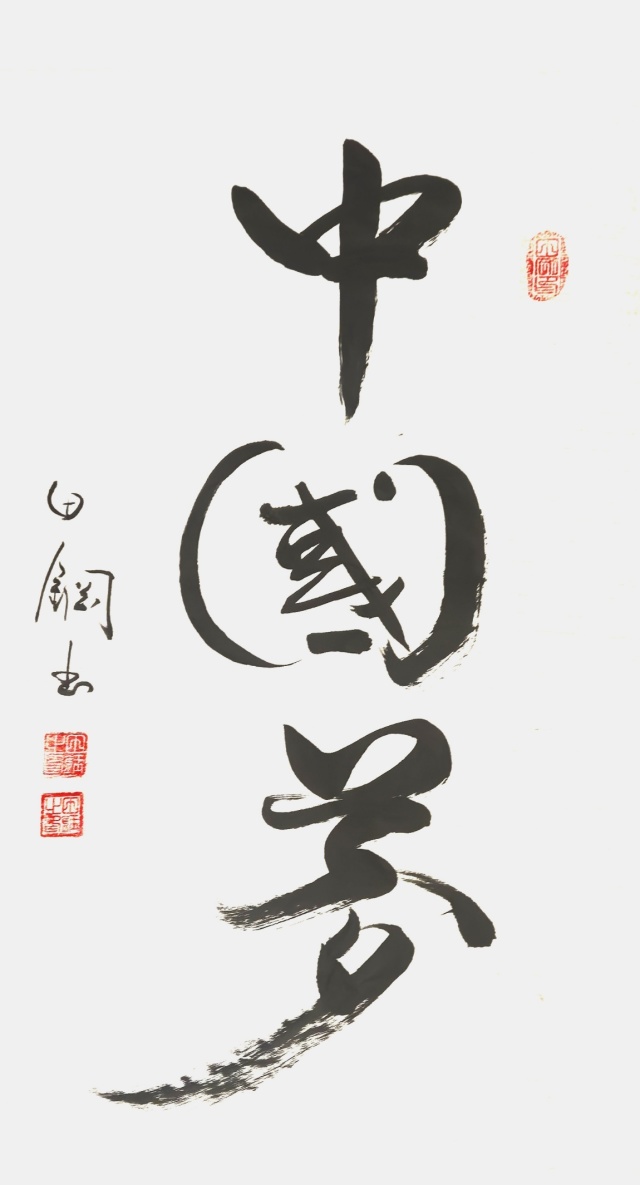 中國夢
白鋼书